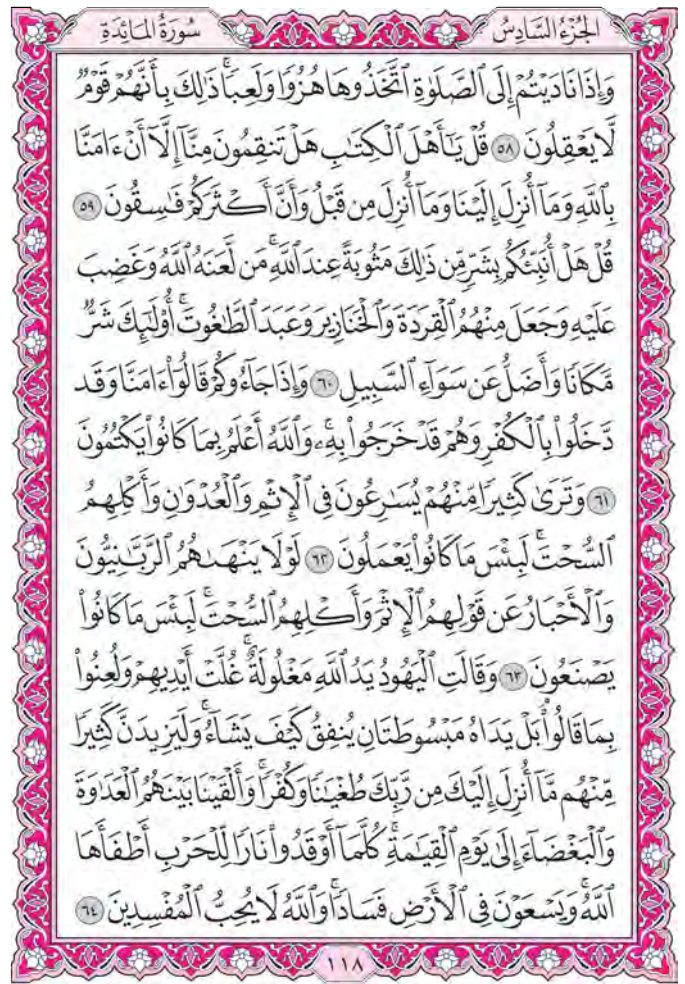 الجُزْءُ السَّادِسُ سُورَةُ المَائِدَةِ
وَإِذَا نَادَيْتُمْ إِلَى ٱلصَّلَوٰةِ ٱتَّخَذُوهَا هُزُوٗا وَلَعِبٗاۚ ذَٰلِكَ بِأَنَّهُمْ قَوْمٞ
لَّا يَعْقِلُونَ ٥٨ قُلْ يَٰٓأَهْلَ ٱلْكِتَٰبِ هَلْ تَنقِمُونَ مِنَّآ إِلَّآ أَنْ ءَامَنَّا
بِٱللَّهِ وَمَآ أُنزِلَ إِلَيْنَا وَمَآ أُنزِلَ مِن قَبْلُ وَأَنَّ أَكْثَرَكُمْ فَٰسِقُونَ ٥٩
قُلْ هَلْ أُنَبِّئُكُم بِشَرّٖ مِّن ذَٰلِكَ مَثُوبَةً عِندَ ٱللَّهِۚ مَن لَّعَنَهُ ٱللَّهُ وَغَضِبَ
عَلَيْهِ وَجَعَلَ مِنْهُمُ ٱلْقِرَدَةَ وَٱلْخَنَازِيرَ وَعَبَدَ ٱلطَّٰغُوتَۚ أُوْلَٰٓئِكَ شَرّٞ
مَّكَانٗا وَأَضَلُّ عَن سَوَآءِ ٱلسَّبِيلِ ٦٠ وَإِذَا جَآءُوكُمْ قَالُوٓاْ ءَامَنَّا وَقَد
دَّخَلُواْ بِٱلْكُفْرِ وَهُمْ قَدْ خَرَجُواْ بِهِۦۚ وَٱللَّهُ أَعْلَمُ بِمَا كَانُواْ يَكْتُمُونَ
٦١ وَتَرَىٰ كَثِيرٗا مِّنْهُمْ يُسَٰرِعُونَ فِي ٱلْإِثْمِ وَٱلْعُدْوَٰنِ وَأَكْلِهِمُ
ٱلسُّحْتَۚ لَبِئْسَ مَا كَانُواْ يَعْمَلُونَ ٦٢ لَوْلَا يَنْهَىٰهُمُ ٱلرَّبَّٰنِيُّونَ
وَٱلْأَحْبَارُ عَن قَوْلِهِمُ ٱلْإِثْمَ وَأَكْلِهِمُ ٱلسُّحْتَۚ لَبِئْسَ مَا كَانُواْ
يَصْنَعُونَ ٦٣ وَقَالَتِ ٱلْيَهُودُ يَدُ ٱللَّهِ مَغْلُولَةٌۚ غُلَّتْ أَيْدِيهِمْ وَلُعِنُواْ
بِمَا قَالُواْۘ بَلْ يَدَاهُ مَبْسُوطَتَانِ يُنفِقُ كَيْفَ يَشَآءُۚ وَلَيَزِيدَنَّ كَثِيرٗا
مِّنْهُم مَّآ أُنزِلَ إِلَيْكَ مِن رَّبِّكَ طُغْيَٰنٗا وَكُفْرٗاۚ وَأَلْقَيْنَا بَيْنَهُمُ ٱلْعَدَٰوَةَ
وَٱلْبَغْضَآءَ إِلَىٰ يَوْمِ ٱلْقِيَٰمَةِۚ كُلَّمَآ أَوْقَدُواْ نَارٗا لِّلْحَرْبِ أَطْفَأَهَا
ٱللَّهُۚ وَيَسْعَوْنَ فِي ٱلْأَرْضِ فَسَادٗاۚ وَٱللَّهُ لَا يُحِبُّ ٱلْمُفْسِدِينَ ٦٤
١١٨